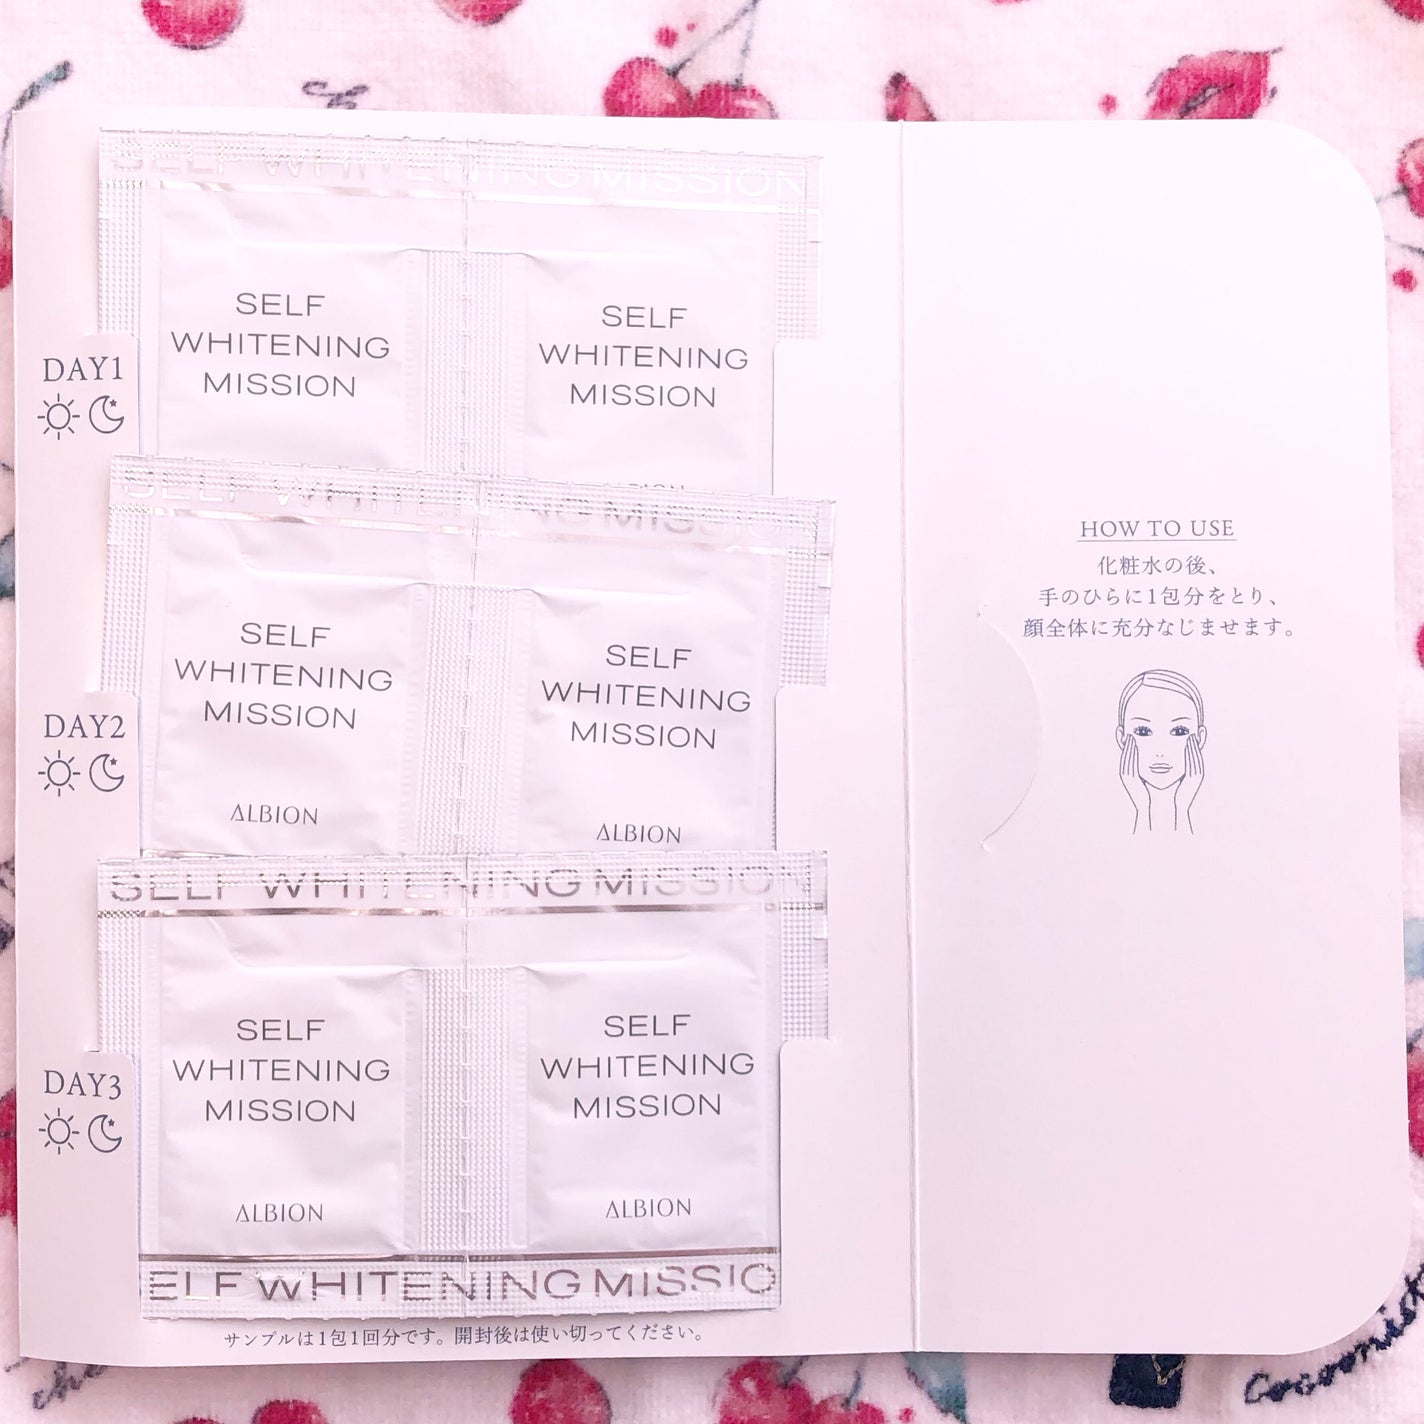 SELF WHITENING MISSION
SELF
WHITENING
MISSION
SELF
WHITENING
MISSION
DAY1
SELF WHITENING MISSION
SELF
WHITENING
MISSION
ALBION
SELF
WHITENING
MISSION
ALBION
DAY2
SELF WHITENING MISSION
SELF
WHITENING
MISSION
ALBION
SELF
WHITENING
MISSION
ALBION
DAY3
ELF WHITENING MISSIO
サンプルは1包1回分です。開封後は使い切ってください。
HOW TO USE
化粧水の後、
手のひらに1包分をとり、
顔全体に充分なじませます。